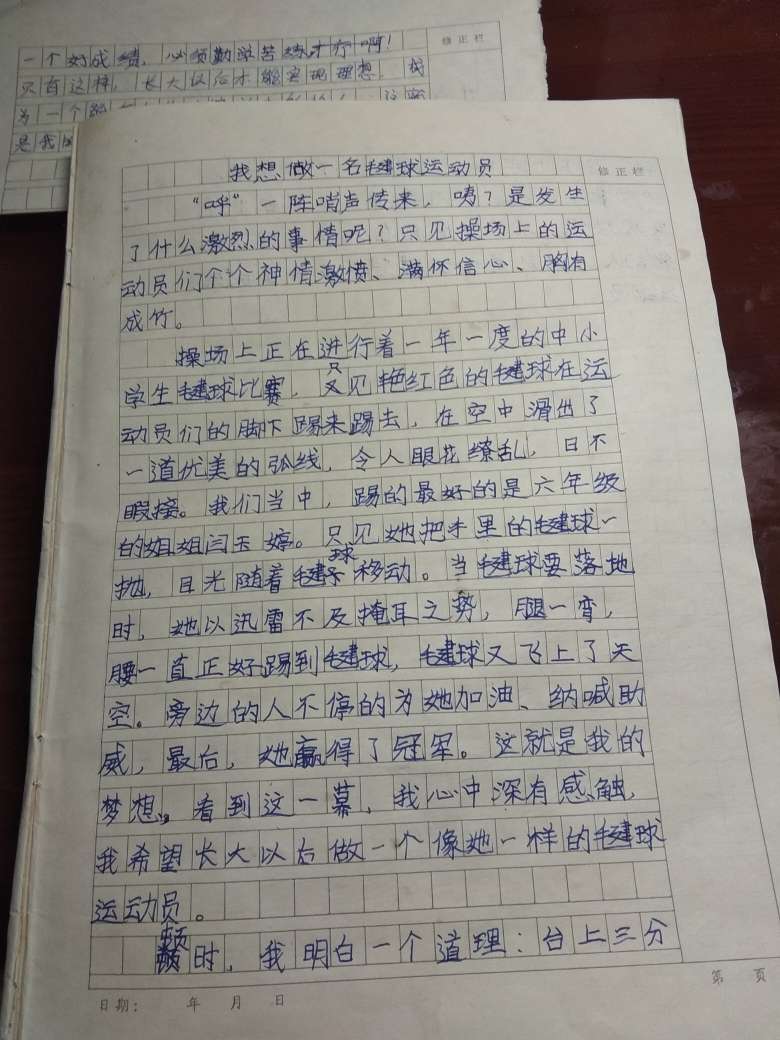 一个好成绩，必须勤学苦练才行啊！
修正栏
只有这样，长大以后才能实现理想，成
为一个
是我的
我想做一名毽球运动员
修正栏
“呼”一阵哨声传来，咦？是发生
了什么激烈的事情呢？只见操场上的运
动员们个个神情激愤、满怀信心、胸有
成竹。
操场上正在进行着一年一度的中小
学生毽球比赛，只见艳红色的毽球在运
动员们的脚下踢来踢去，在空中滑出了
一道优美的弧线，令人眼花缭乱，目不
暇接。我们当中，踢的最好的是六年级
的姐姐闫玉婷。只见她把手里的毽球一
抛，目光随着毽球移动。当毽球要落地
时，她以迅雷不及掩耳之势，腿一弯，
腰一直正好踢到毽球，毽球又飞上了天
空。旁边的人不停的为她加油、纳喊助
威，最后，她赢得了冠军。这就是我的
梦想。看到这一幕，我心中深有感触，
我希望长大以后做一个像她一样的毽球
运动员。
顿时，我明白一个道理：台上三分
日期： 年 月 日
第 页